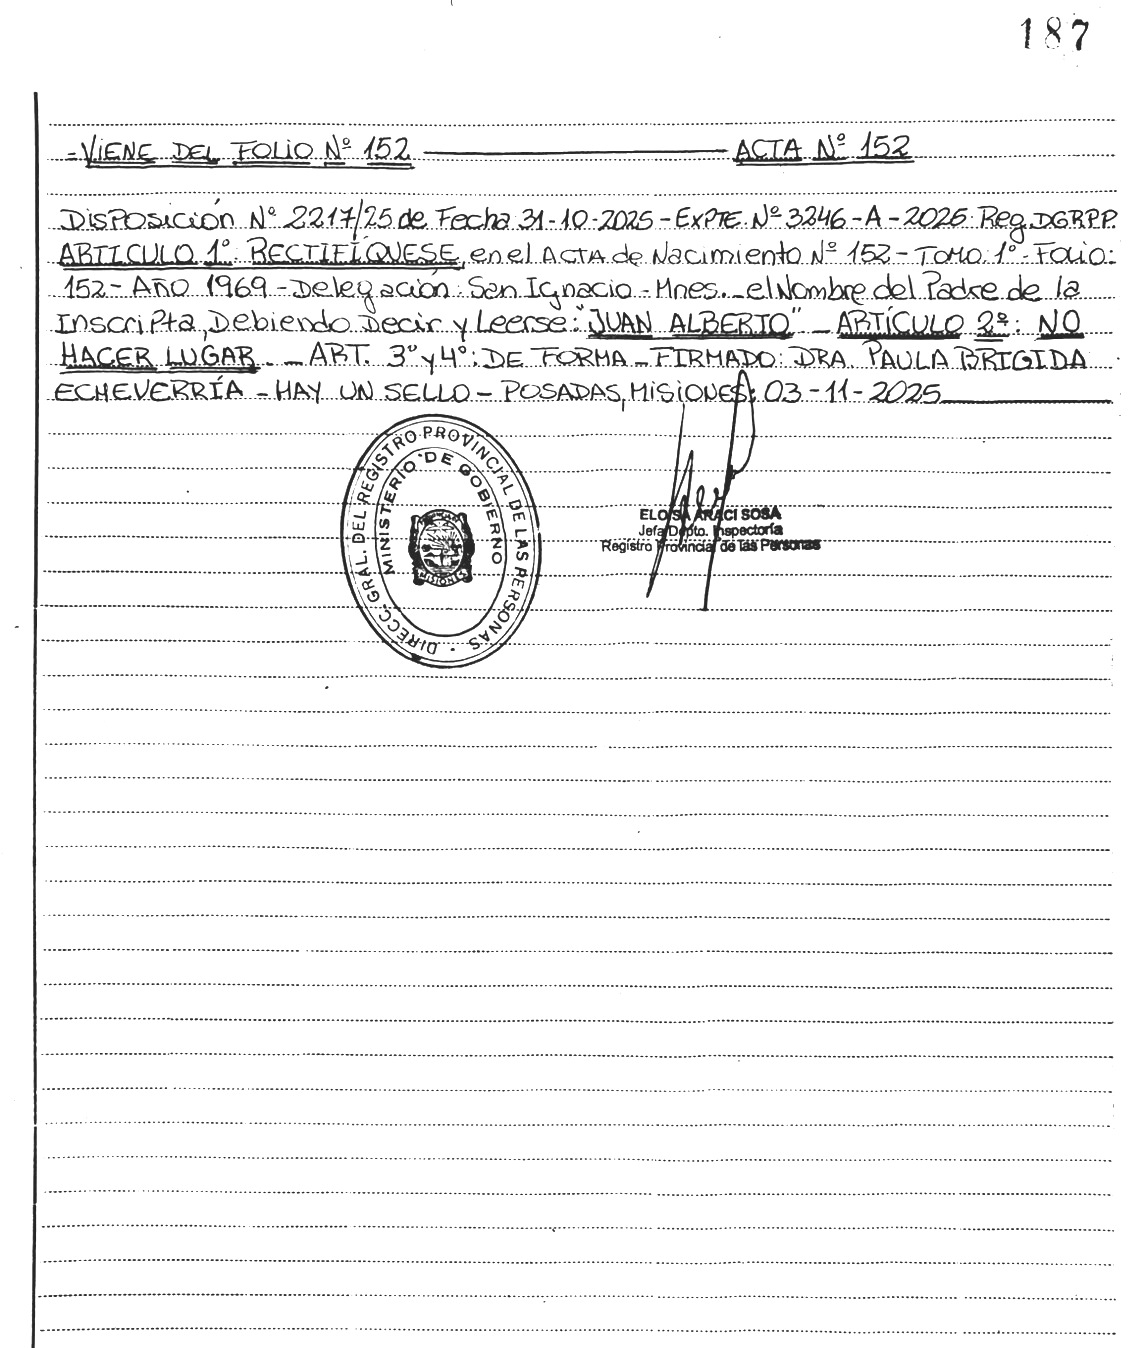 187
=VIENE DEL FOLIO Nº 152 ACTA Nº 152
DISPOSICIÓN Nº 2217/25 de Fecha 31-10-2025-EXPTE Nº 3246-A-2025 Reg. DGRPP.
ARTICULO 1º RECTIFÍQUESE, en el ACTA de Nacimiento Nº 152-TOMO 1º-FOLIO:
152-AÑO 1969-Delegación: San Ignacio-Mnes.-el Nombre del Padre de la
Inscripta, Debiendo Decir y Leerse: "JUAN ALBERTO"-ARTÍCULO 2º: NO
HACER LUGAR.-ART. 3º y 4º: DE FORMA-FIRMADO: DRA. PAULA BRIGIDA
ECHEVERRÍA-HAY UN SELLO-POSADAS, MISIONES; 03-11-2025
DIRECC. GRAL. DEL REGISTRO PROVINCIAL DE LAS PERSONAS
MINISTERIO DE GOBIERNO
MISIONES
ELOISA ARACI SOSA
Jefa Dpto. Inspectoría
Registro Provincial de las Personas